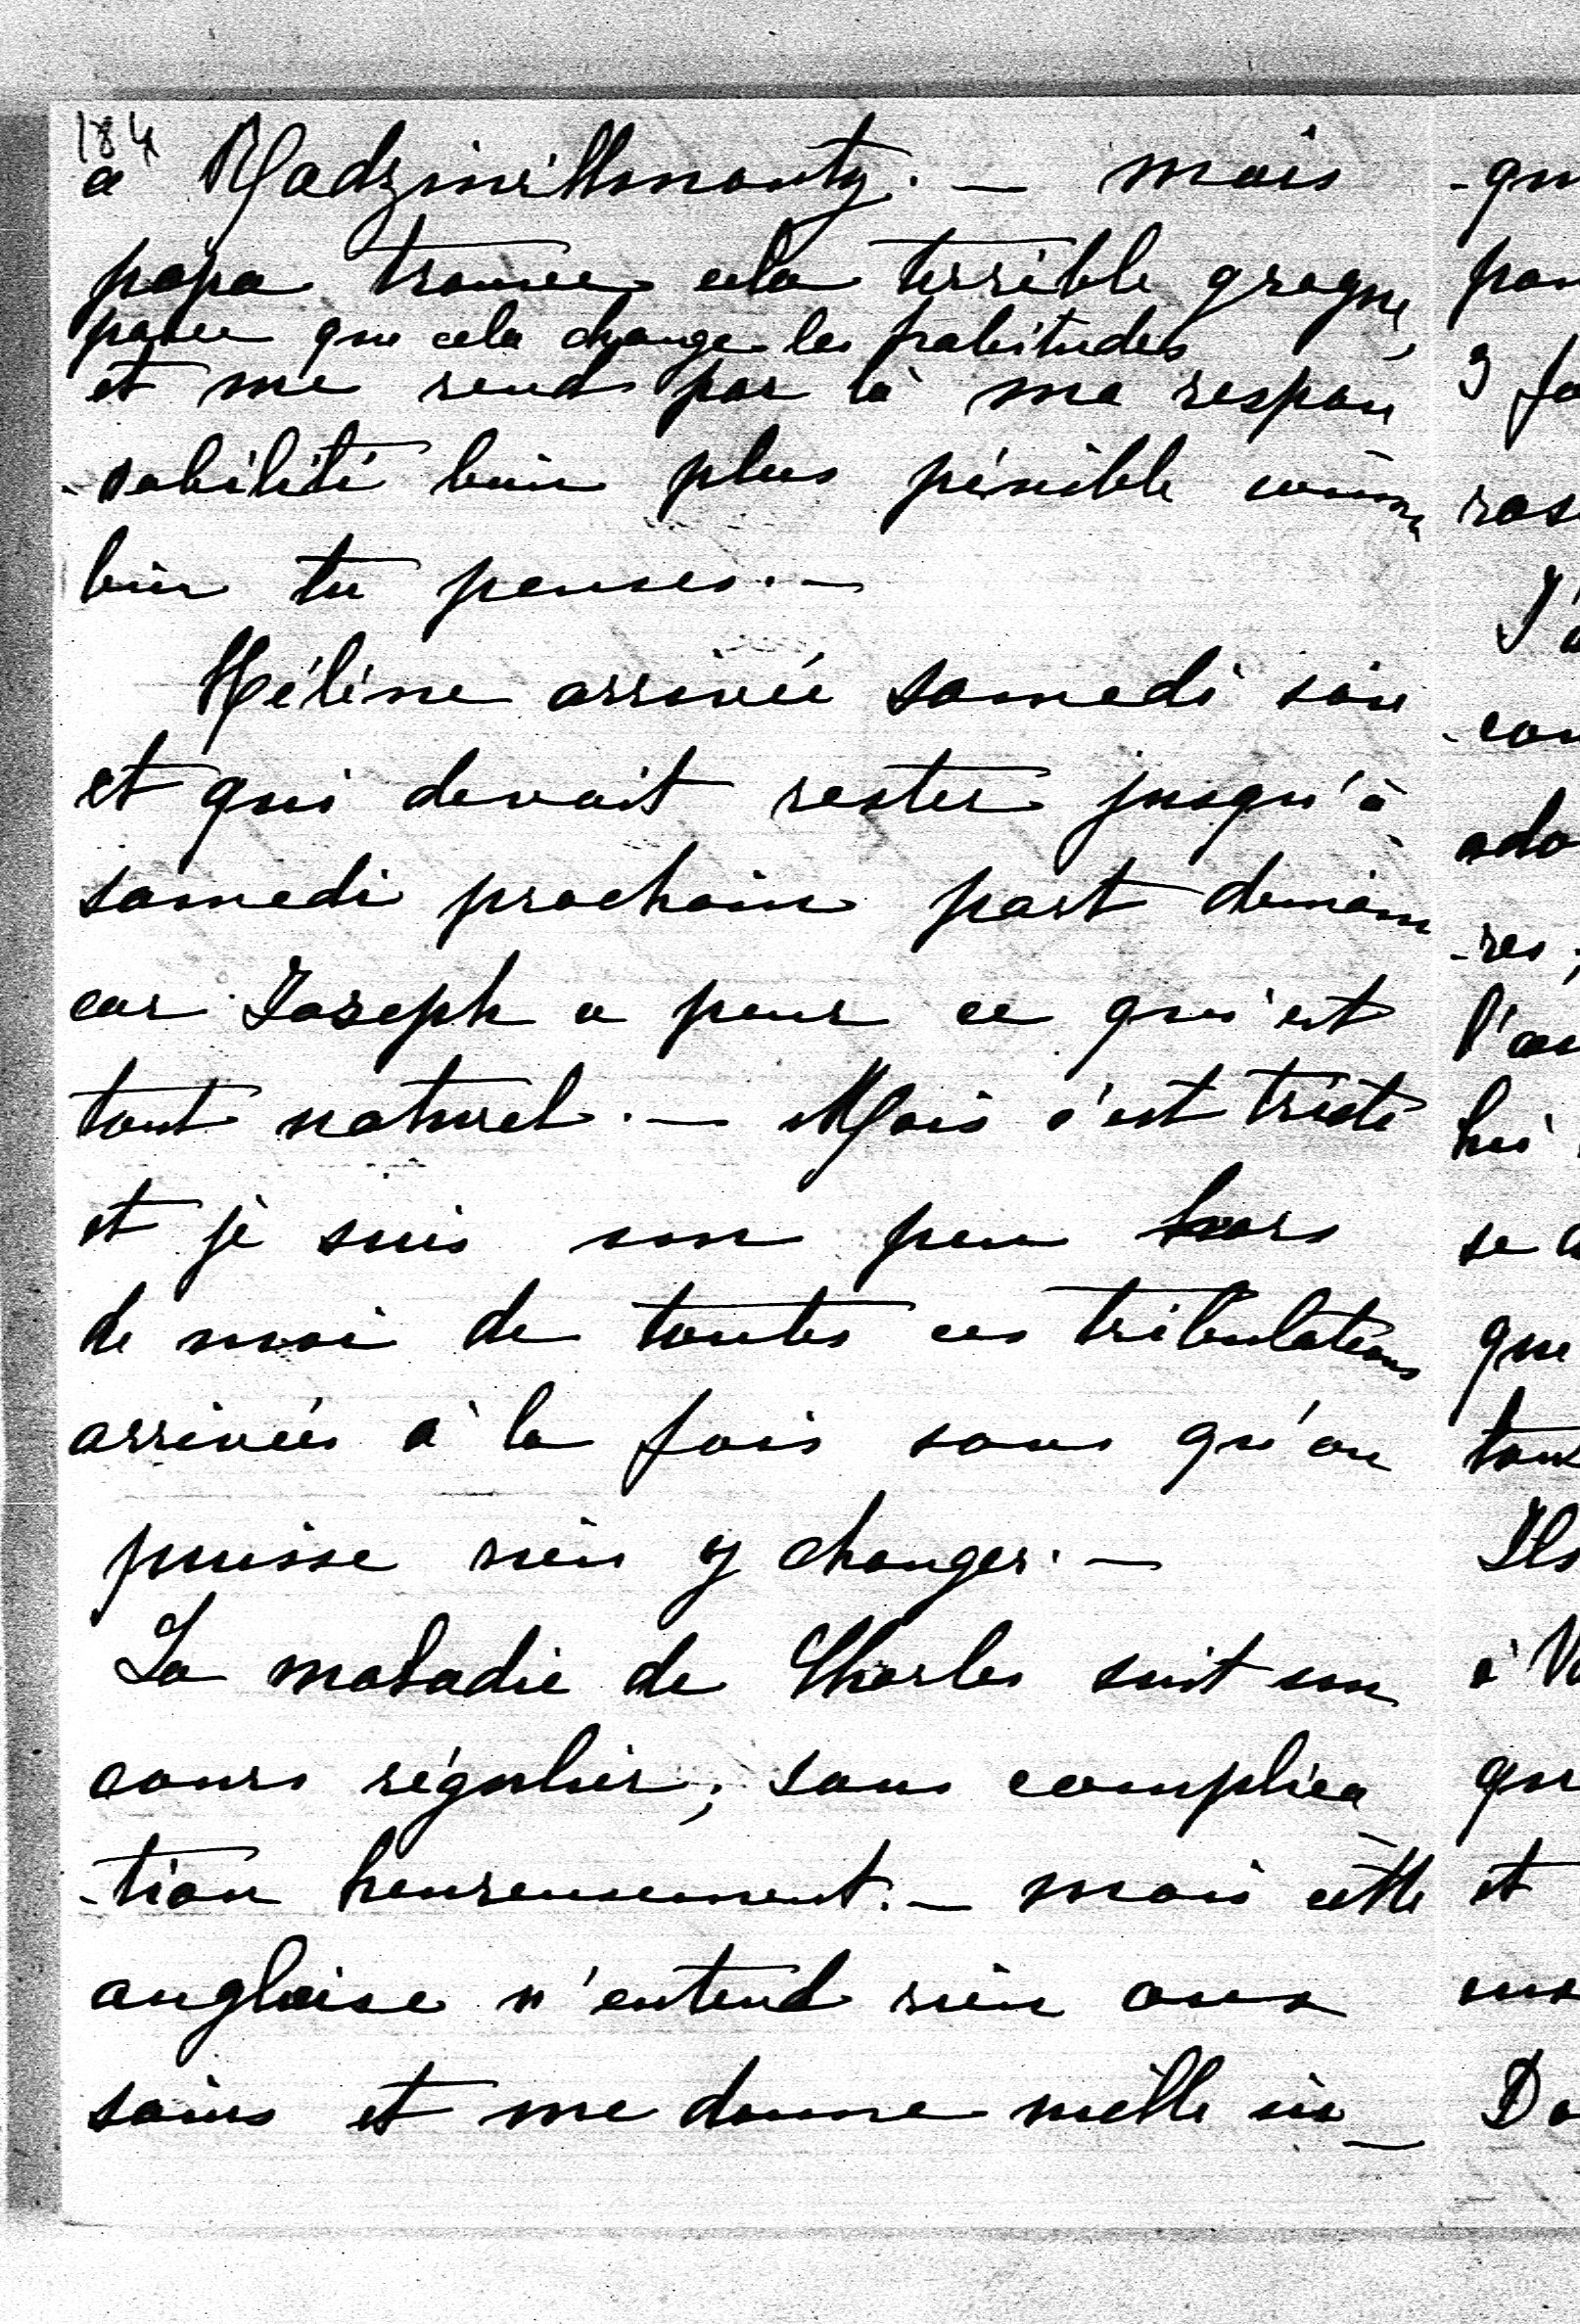 184
à Radziwillmonty. — mais
papa trouve cela terrible grogne,
parce que cela change les habitudes
et me rend par là ma respon
-sabilité bien plus pénible comme
bien tu penses. —
Hélène arrivée samedi soir
et qui devait rester jusqu'à
samedi prochain part demain
car Joseph a peur ce qui est
tout naturel. — Mais c'est triste
et je suis un peu hors
de moi de toutes ces tribulations
arrivées à la fois sans qu'on
puisse rien y changer. —
La maladie de Charles suit son
cours régulier; sans complica
-tion heureusement. — mais cette
anglaise n'entend rien aux
soins et me donne mille in_
-qu
pou
3 fo
ros
J'a
-con
ado
-res ;
l'au
lui
se
que
tous
Ils
à V
qu
et
Do